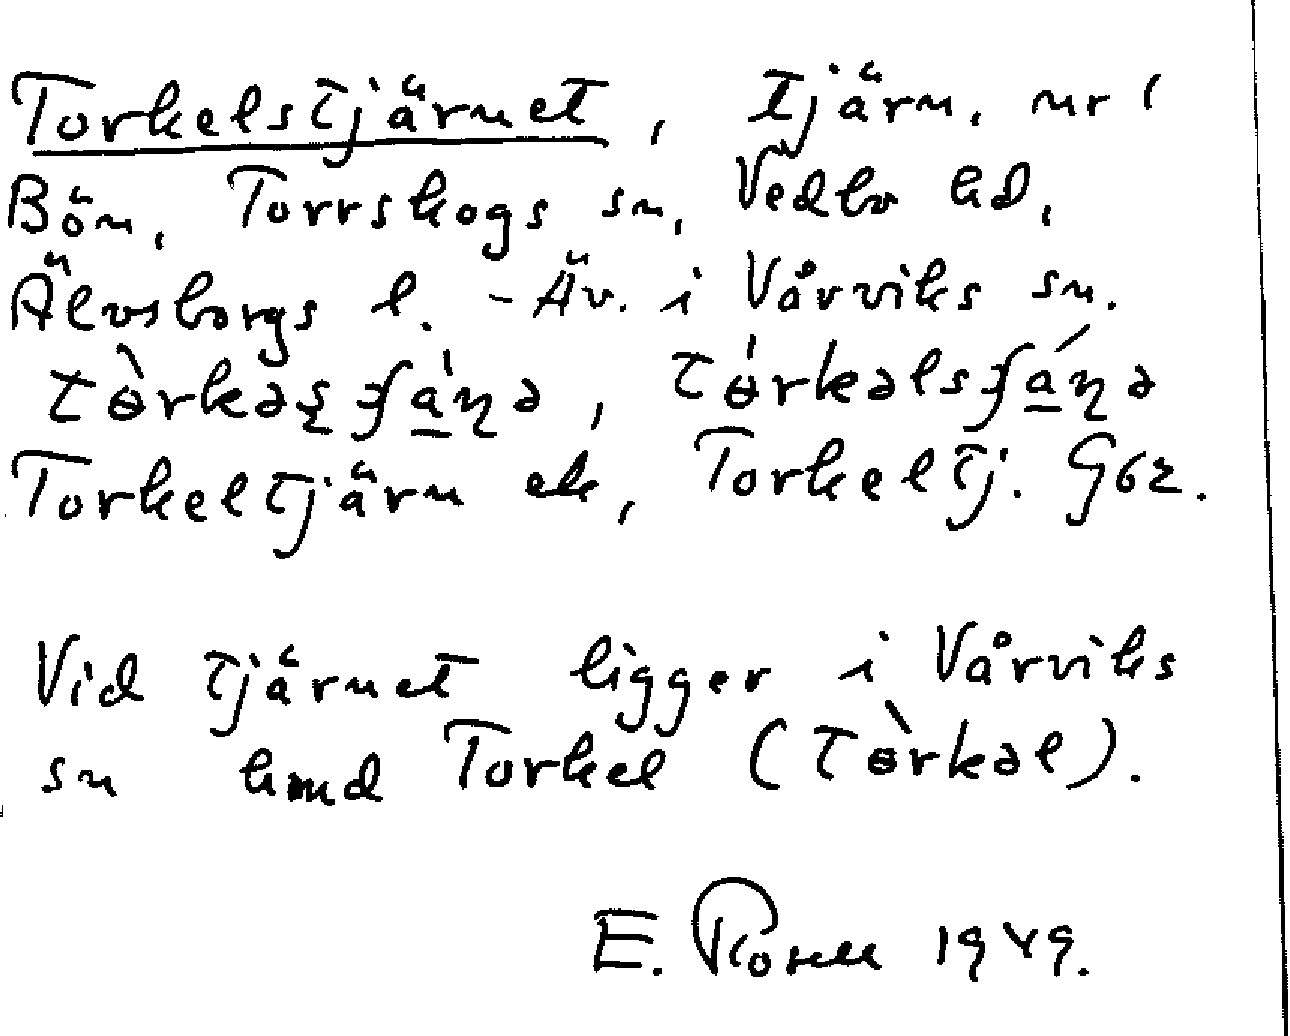 Torkelstjärnet, tjärn, nr 1
Bön, Torrskogs sn, Vedbo hd,
Älvsborgs l. - Äv. i Vårviks sn.
tɵ̀rkəʂʃa̱̍ɳə, tɵ̍rkəlsʃá̱ɳə
Torkeltjärn ek, Torkeltj. G62.
Vid tjärnet ligger i Vårviks
sn hmd Torkel (tɵ̀rkəl).
E. 1949.